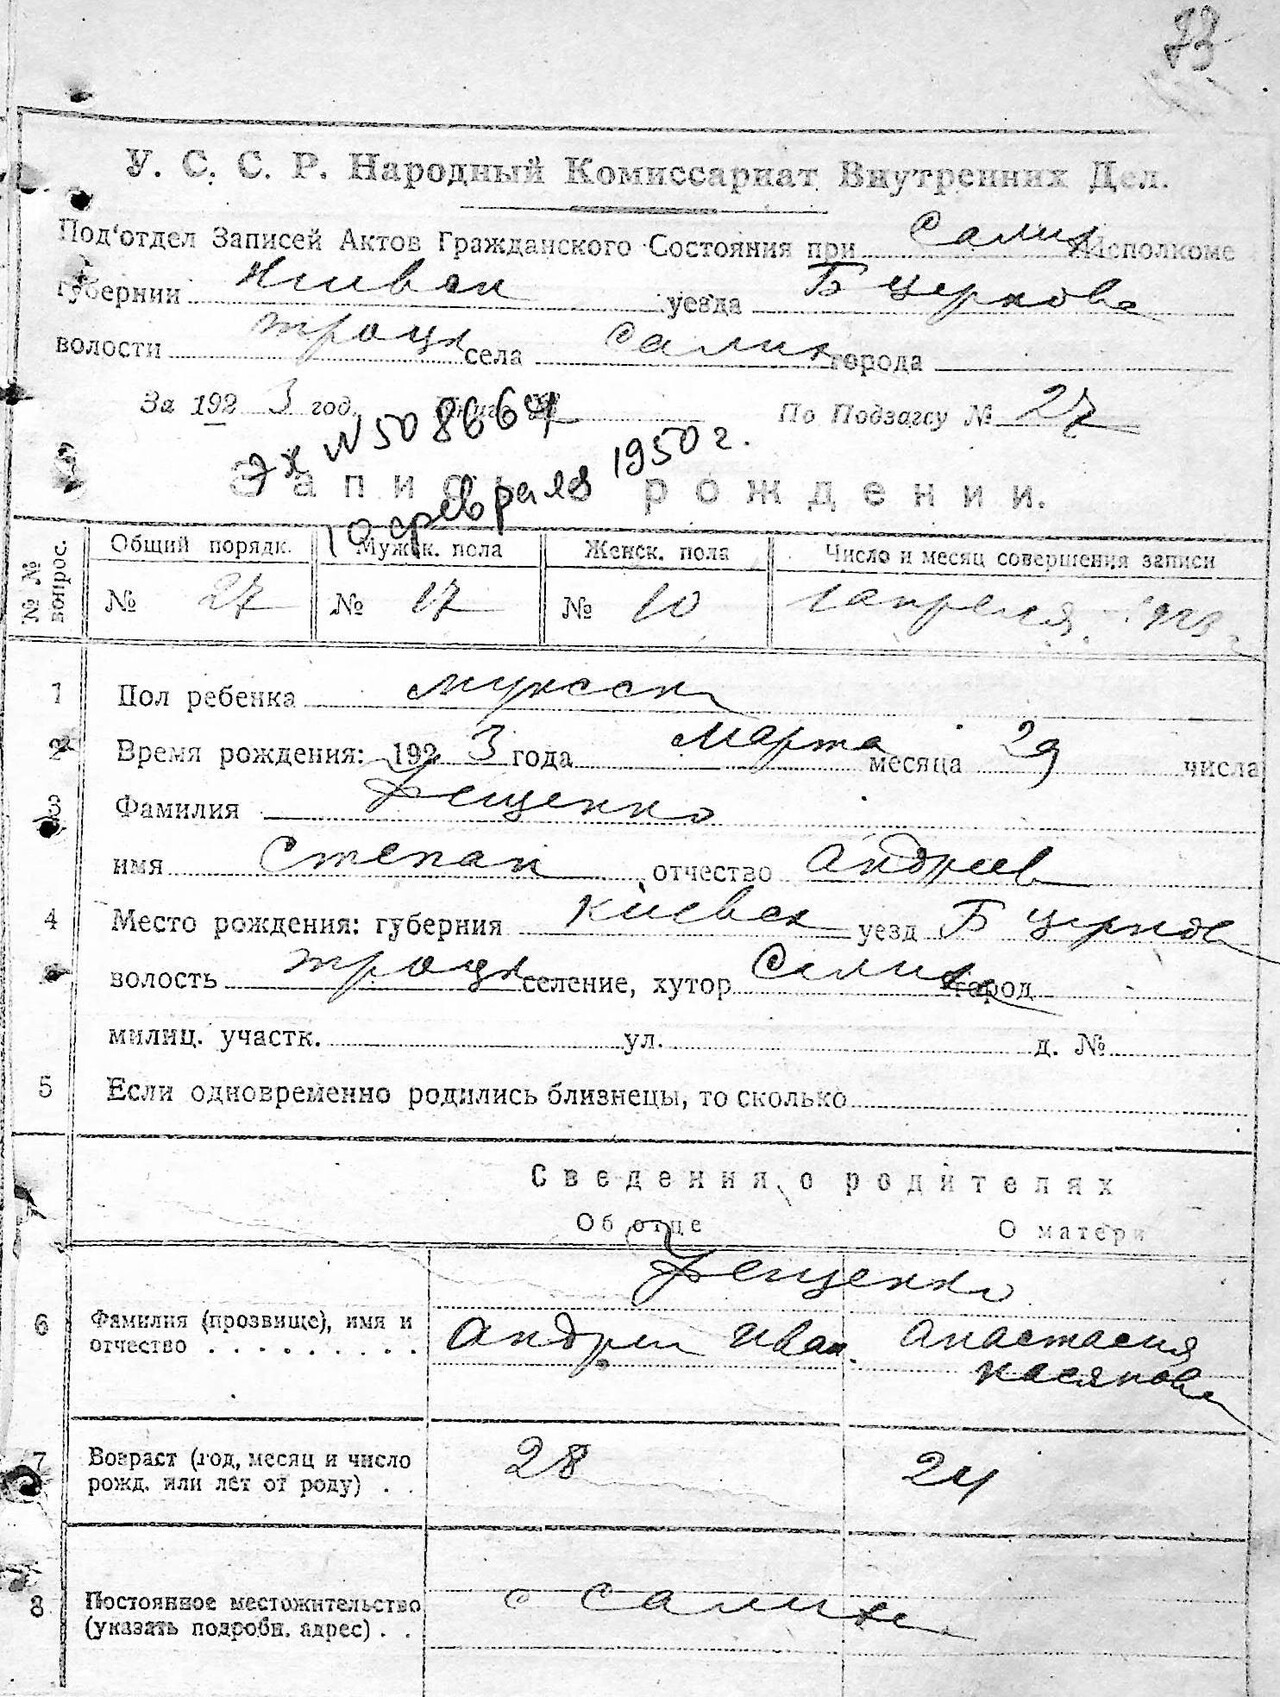 73
У. С. С. Р. Народный Комиссариат Внутренних Дел.
Под'отдел Записей Актов Гражданского Состояния при Салих Исполкоме
губернии Киевск уезда Б Церков
волости троцк села Салих города
За 192 3 год. По Подзагсу № 27
эк N 508664
10 февраля 1950 г.
Запись рождении.
№ № вопрос. Общий порядк. Мужск. пола Женск. пола Число и месяц совершения записи
№ 27 № 17 № 10 1 апреля 1923
1 Пол ребенка мужеск
2 Время рождения: 192 3 года Марта месяца 29 числа
3 Фамилия
имя Степан отчество Андреев
4 Место рождения: губерния Киевск уезд Б Церков
волость троцк селение, хутор Салих город
милиц. участк. ул. д. №
5 Если одновременно родились близнецы, то сколько
Сведения о родителях
Об отце О матери
6 Фамилия (прозвище), имя и Андрей Иван. Анастасия
отчество Касянов
7 Возраст (год, месяц и число 28 24
рожд. или лет от роду)
8 Постоянное местожительство с Салих
(указать подробн. адрес)